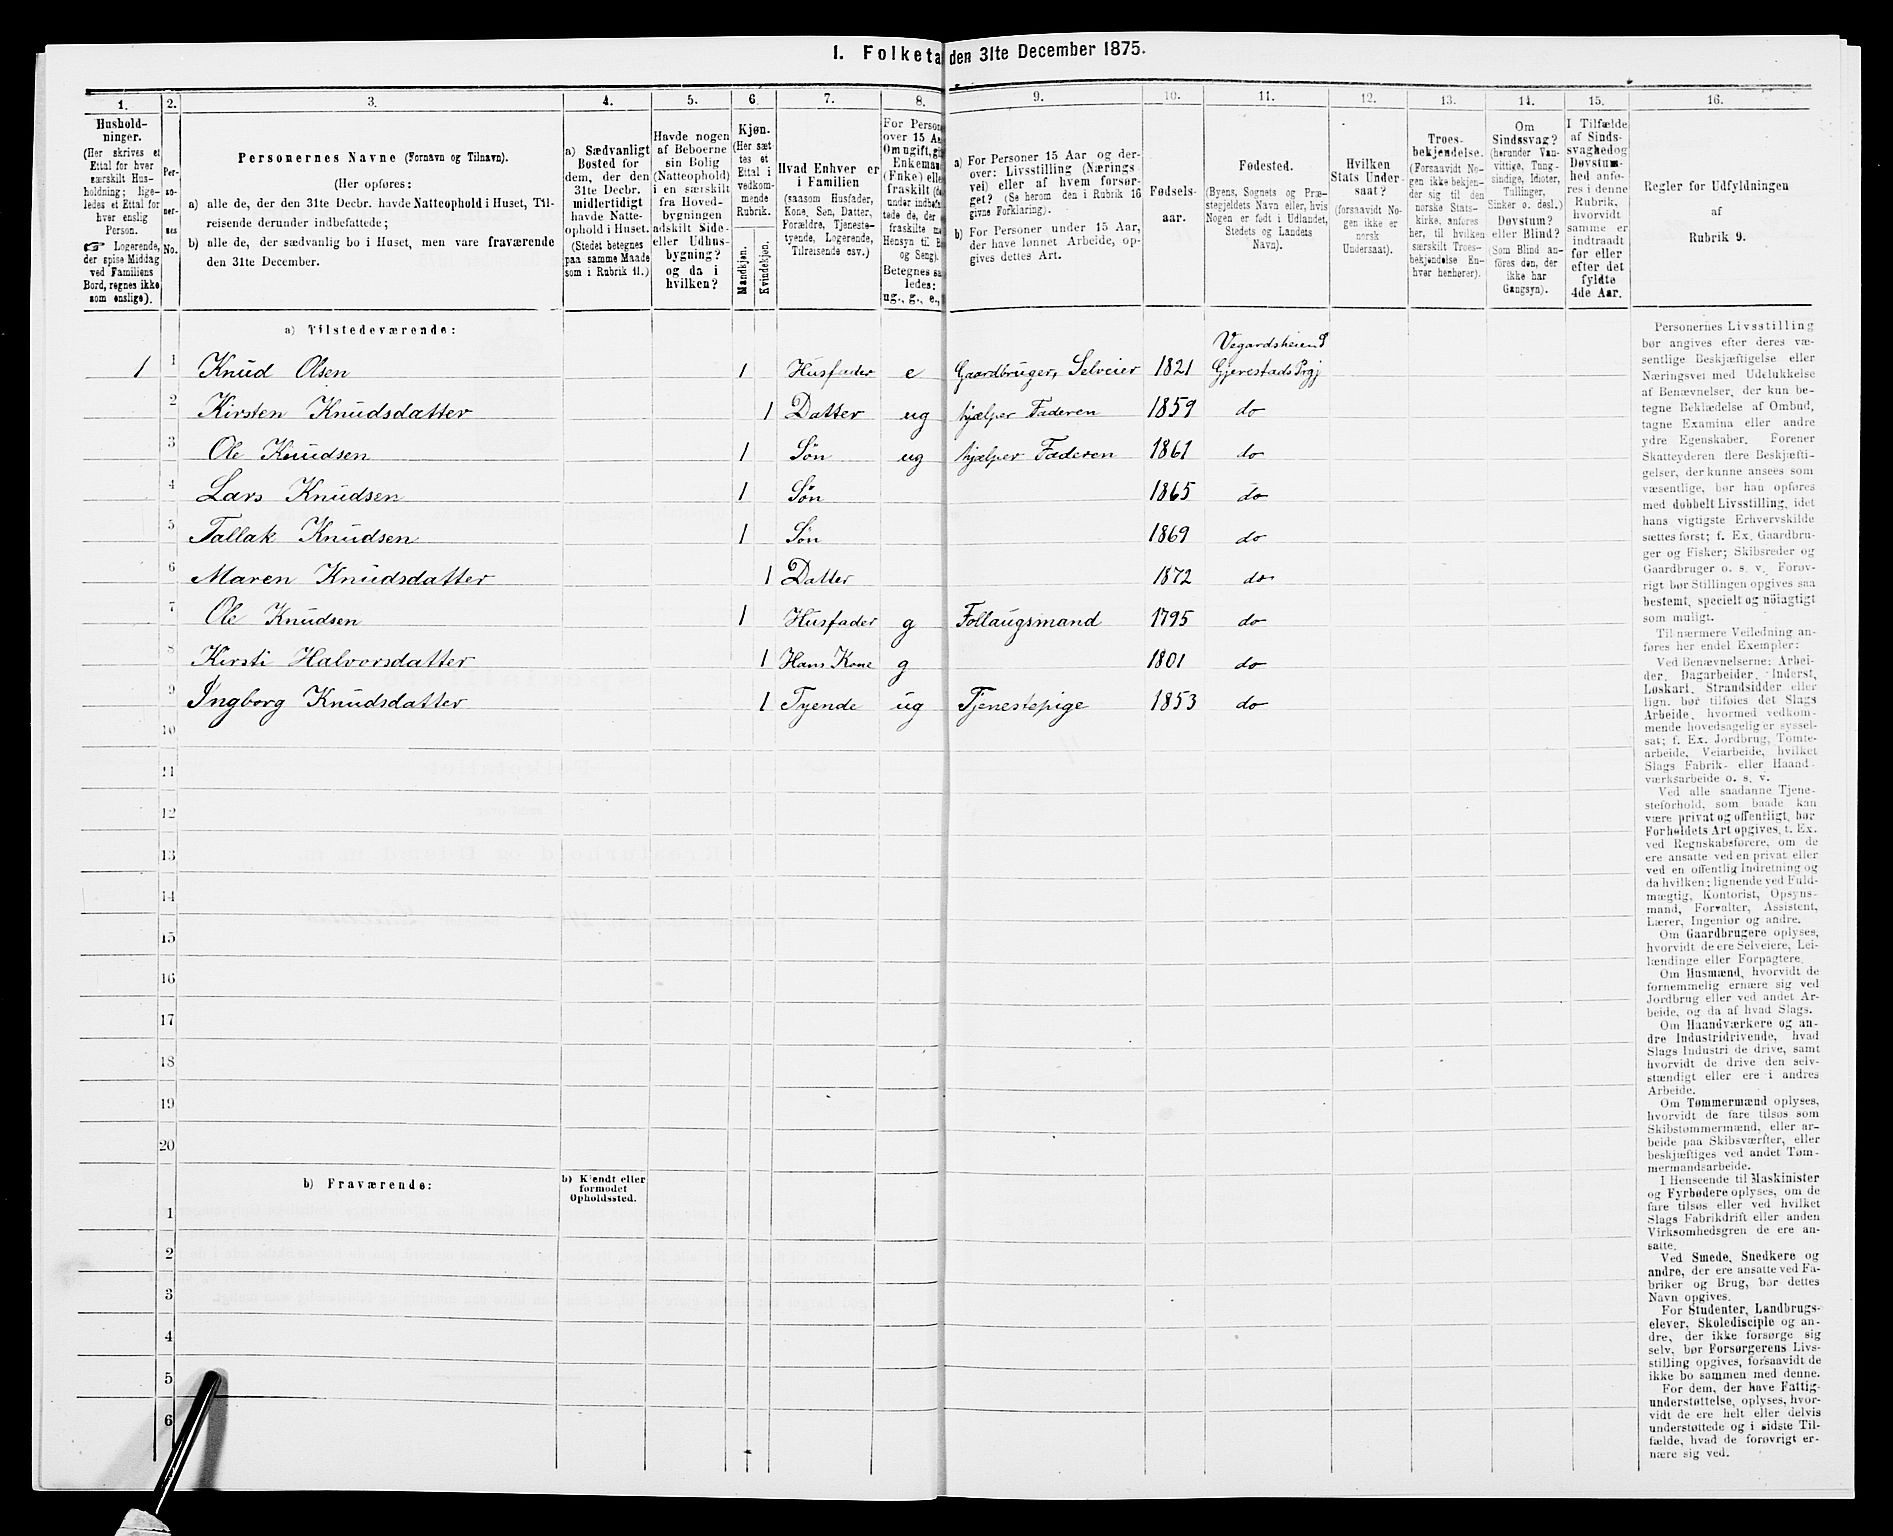 1. Folketæ den 31te December 1875.
1. 2. 3. 4. 5. 6. 7. 8. 9. 10. 11. 12. 13. 14. 15. 16.
Hushold-
ninger.
(Her skrives et
Ettal for hver
særskilt Hus-
holdning; lige-
ledes et Ettal for
hver enslig
Person.
☞ Logerende,
der spise Middag
ved Familiens
Bord, regnes ikke
som enslige).
Per-
so-
ner-
nes
No.
Personernes Navne (Fornavn og Tilnavn).
(Her opføres:
a) alle de, der den 31te Decbr. havde Natteophold i Huset, Til-
reisende derunder indbefattede;
b) alle de, der sædvanlig bo i Huset, men vare fraværende
den 31te December.
a) Sædvanligt
Bosted for
dem, der den
31te Decbr.
midlertidigt
havde Natte-
ophold i Huset.
(Stedet betegnes
paa samme Maade
som i Rubrik 11.)
Havde nogen
af Beboerne
sin Bolig
(Natteophold)
i en særskilt
fra Hoved-
bygningen
adskilt Side-
eller Udhus-
bygning?
og da i
hvilken?
Kjøn.
(Her sæt-
tes et
Ettal i
vedkom-
mende
Rubrik.
Mandkjøn.
Kvindekjøn.
Hvad Enhver er
i Familien
(saasom Husfader,
Kone, Søn, Datter,
Forældre, Tjeneste-
tyende, Logerende,
Tilreisende osv.)
For Person
over 15 Aa
Om ugift, gi
Enkeman
(Enke) elle
fraskilt (de
under indbefat-
tede de, der e
fraskilte m
Hensyn til B
og Seng).
Betegnes sa
ledes:
ug., g., e.,
a) For Personer 15 Aar og der-
over: Livsstilling (Nærings-
vei) eller af hvem forsør-
get? (Se herom den i Rubrik 16
givne Forklaring).
b) For Personer under 15 Aar,
der have lønnet Arbeide, op-
gives dettes Art.
Fødsels-
aar.
Fødested.
(Byens, Sognets og Præ-
stegjeldets Navn eller, hvis
Nogen er født i Udlandet,
Stedets og Landets
Navn).
Hvilken
Stats Under-
saat?
(forsaavidt No-
gen ikke er
norsk
Undersaat).
Troes-
bekjendelse.
(Forsaavidt No-
gen ikke bekjen-
der sig til den
norske Stats-
kirke, anføres
her, til hvilken
særskilt Troes-
bekjendelse En-
hver henhører).
Om
Sindssvag?
(herunder Van-
vittige, Tung-
sindige, Idioter,
Tullinger,
Sinker o. desl.)
Døvstum?
eller Blind?
(Som Blind an-
føres den, der
ikke har
Gangsyn).
I Tilfælde
af Sinds-
svaghed og
Døvstum-
hed anfø-
res i denne
Rubrik,
hvorvidt
samme er
indtraadt
før eller
efter det
fyldte
4de Aar.
Regler for Udfyldningen
af
Rubrik 9.
a) Tilstedeværende:
Vegardsheiens
1 1 Knud Olsen 1 Husfader e Gaardbruger, Selveier 1821 Gjerestads Prgj
2 Kirsten Knudsdatter 1 Datter ug hjælper Faderen 1859 do
3 Ole Knudsen 1 Søn ug hjælper Faderen 1861 do
4 Lars Knudsen 1 Søn 1865 do
5 Tallak Knudsen 1 Søn 1869 do
6 Maren Knudsdatter 1 Datter 1872 do
7 Ole Knudsen 1 Husfader g Follaugsmand 1795 do
8 Kirsti Halvorsdatter 1 Hans Kone g 1801 do
9 Ingborg Knudsdatter 1 Tyende ug Tjenestepige 1853 do
10
11
12
13
14
15
16
17
18
19
20
b) Fraværende:
b) Kjendt eller
formodet
Opholdssted.
1
2
3
4
5
6
Personernes Livsstilling
bør angives efter deres væ-
sentlige Beskjæftigelse eller
Næringsvei med Udelukkelse
af Benævnelser, der kun be-
tegne Beklædelse af Ombud,
tagne Examina eller andre
ydre Egenskaber. Forener
Skatteyderen flere Beskjæfti-
gelser, der kunne ansees som
væsentlige, bør han opføres
med dobbelt Livsstilling, idet
hans vigtigste Erhvervskilde
sættes først; f. Ex. Gaardbru-
ger og Fisker; Skibsreder og
Gaardbruger o. s. v. Forøv-
rigt bør Stillingen opgives saa
bestemt, specielt og nöiagtigt
som muligt.
Til nærmere Veiledning an-
føres her endel Exempler:
Ved Benævnelserne: Arbei-
der, Dagarbeider, Inderst,
Løskarl, Strandsidder eller
lign. bør tilføies det Slags
Arbeide, hvormed vedkom-
mende hovedsagelig er syssel-
sat; f. Ex. Jordbrug, Tomte-
arbeide, Veiarbeide, hvilket
Slags Fabrik- eller Haand-
værksarbeide o. s. v.
Ved alle saadanne Tjene-
steforhold, som baade kan
være privat og offentligt, bør
Forholdets Art opgives, f. Ex.
ved Regnskabsførere, om de
ere ansatte ved en privat eller
ved en offentlig Indretning og
da hvilken; lignende ved Fuld-
mægtig, Kontorist, Opsyns-
mand, Forvalter, Assistent,
Lærer, Ingeniør og andre.
Om Gaardbrugere oplyses,
hvorvidt de ere Selveiere, Lei-
lændinge eller Forpagtere.
Om Husmænd, hvorvidt de
fornemmelig ernære sig ved
Jordbrug eller ved andet Ar-
beide, og da af hvad Slags.
Om Haandværkere og an-
dre Industridrivende, hvad
Slags Industri de drive, samt
hvorvidt de drive den selv-
stændigt eller ere i andres
Arbeide.
Om Tømmermænd oplyses,
hvorvidt de fare tilsøs som
Skibstømmermænd, eller ar-
beide paa Skibsværfter, eller
beskjæftiges ved andet Tøm-
mermandsarbeide.
I Henseende til Maskinister
og Fyrbødere oplyses, om de
fare tilsøs eller ved hvilket
Slags Fabrikdrift eller anden
Virksomhedsgren de ere an-
satte.
Ved Smede, Snedkere og
andre, der ere ansatte ved Fa-
briker og Brug, bør dettes
Navn opgives.
For Studenter, Landbrugs-
elever, Skoledisciple og an-
dre, der ikke forsørge sig
selv, bør Forsørgerens Livs-
stilling opgives, forsaavidt de
ikke bo sammen med denne.
For dem, der have Fattig-
understøttelse, oplyses, hvor-
vidt de ere helt eller delvis
understøttede og i sidste Til-
fælde, hvad de forøvrigt er-
nære sig ved.